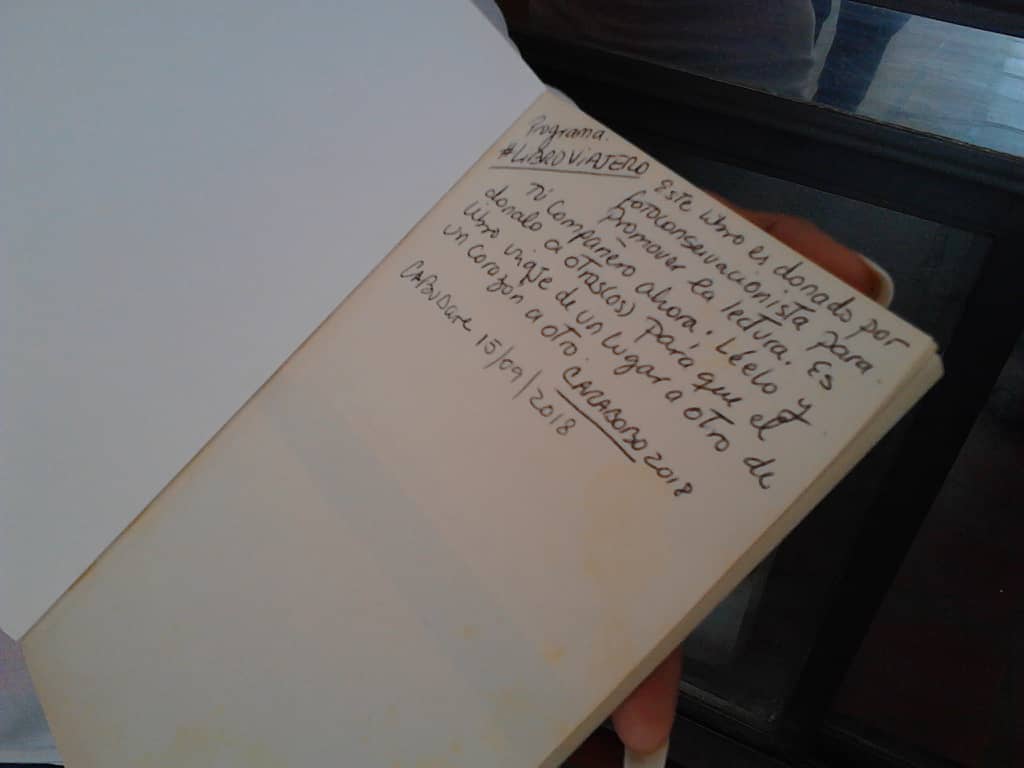 Programa.
#LIBROVIAJERO
Este libro es donado por
fotoconservacionista para
Promover la lectura. Es
Tú Compañero ahora. Léelo y
donalo a otras(os) para que el
libro viaje de un lugar a otro de
un corazon a otro. CARABOBO 2018
CABUDare 15/09/2018